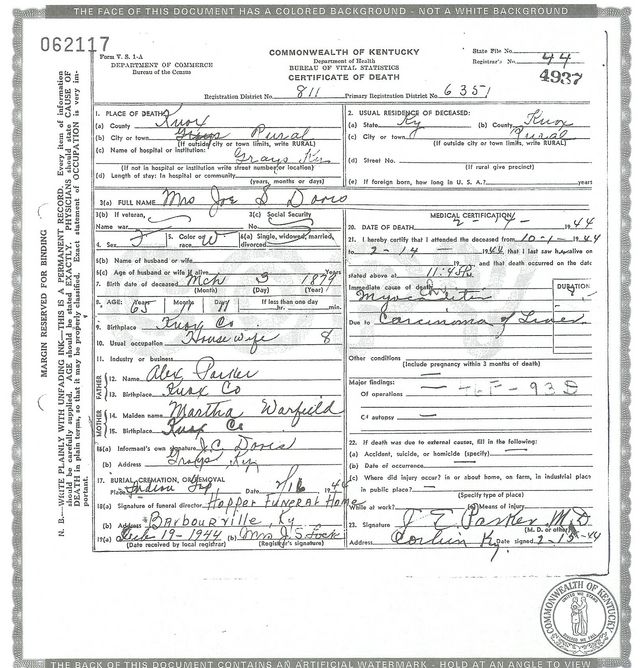 THE FACE OF THIS DOCUMENT HAS A COLORED BACKGROUND - NOT A WHITE BACKGROUND
062117
Form V. S. 1-A
DEPARTMENT OF COMMERCE
Bureau of the Census
COMMONWEALTH OF KENTUCKY
Department of Health
BUREAU OF VITAL STATISTICS
CERTIFICATE OF DEATH
State File No.
Registrar's No. 44
4937
Registration District No. 811 Primary Registration District No. 6351
MARGIN RESERVED FOR BINDING
N. B.—WRITE PLAINLY WITH UNFADING INK—THIS IS A PERMANENT RECORD. Every item of information
should be carefully supplied. AGE should be stated EXACTLY. PHYSICIANS should state CAUSE OF
DEATH in plain terms, so that it may be properly classified. Exact statement of OCCUPATION is very im-
portant.
1. PLACE OF DEATH
(a) County Knox
(b) City or town Grays Rural
(If outside city or town limits, write RURAL)
(c) Name of hospital or institution:
Grays Ky
(If not in hospital or institution write street number or location)
(d) Length of stay: In hospital or community
(years, months or days)
2. USUAL RESIDENCE OF DECEASED:
(a) State Ky (b) County Knox
(c) City or town Rural
(If outside city or town limits, write RURAL)
(d) Street No.
(If rural give precinct)
(e) If foreign born, how long in U. S. A.? years
3(a) FULL NAME Mrs Joe S Davis
3(b) If veteran,
Name war
3(c) Social Security
No.
4. Sex F 5. Color or race W 6(a) Single, widowed, married, divorced
6(b) Name of husband or wife
6(c) Age of husband or wife if alive Years
7. Birth date of deceased Mch 3 1879
(Month) (Day) (Year)
8. AGE: Years 65 Months 11 Days 11 If less than one day
hr. min.
9. Birthplace Knox Co.
10. Usual occupation Housewife 8
11. Industry or business
FATHER
12. Name Alex Parker
13. Birthplace Knox Co
MOTHER
14. Maiden name Martha Warfield
15. Birthplace Knox Co
16(a) Informant's own signature J.C. Davis
(b) Address Grays Ky
17. BURIAL, CREMATION, OR REMOVAL
Place Date 2/16 1944
18(a) Signature of funeral director Hopper Funeral Home
(b) Address Barbourville, Ky
19(a) Feb 19-1944 (b) Mrs J. S. Lock
(Date received by local registrar) (Registrar's signature)
MEDICAL CERTIFICATION
20. DATE OF DEATH 2-14 1944
21. I hereby certify that I attended the deceased from 10-1-1944
to 2-14 1944 that I last saw her alive on
19 and that death occurred on the date
stated above at 11:45 P.M.
Immediate cause of death Chr DURATION
Myocarditis
Due to Carcinoma of Liver
Other conditions
(Include pregnancy within 3 months of death)
Major findings:
Of operations 46F-93D
Of autopsy
22. If death was due to external causes, fill in the following:
(a) Accident, suicide, or homicide (specify)
(b) Date of occurrence
(c) Where did injury occur? in or about home, on farm, in industrial place
in public place?
(Specify type of place)
While at work? (e) Means of injury
23. Signature J. E. Parker M.D.
(M. D. or other)
Address Corbin Ky. Date signed 2-15-44
COMMONWEALTH OF KENTUCKY
THE BACK OF THIS DOCUMENT CONTAINS AN ARTIFICIAL WATERMARK - HOLD AT AN ANGLE TO VIEW